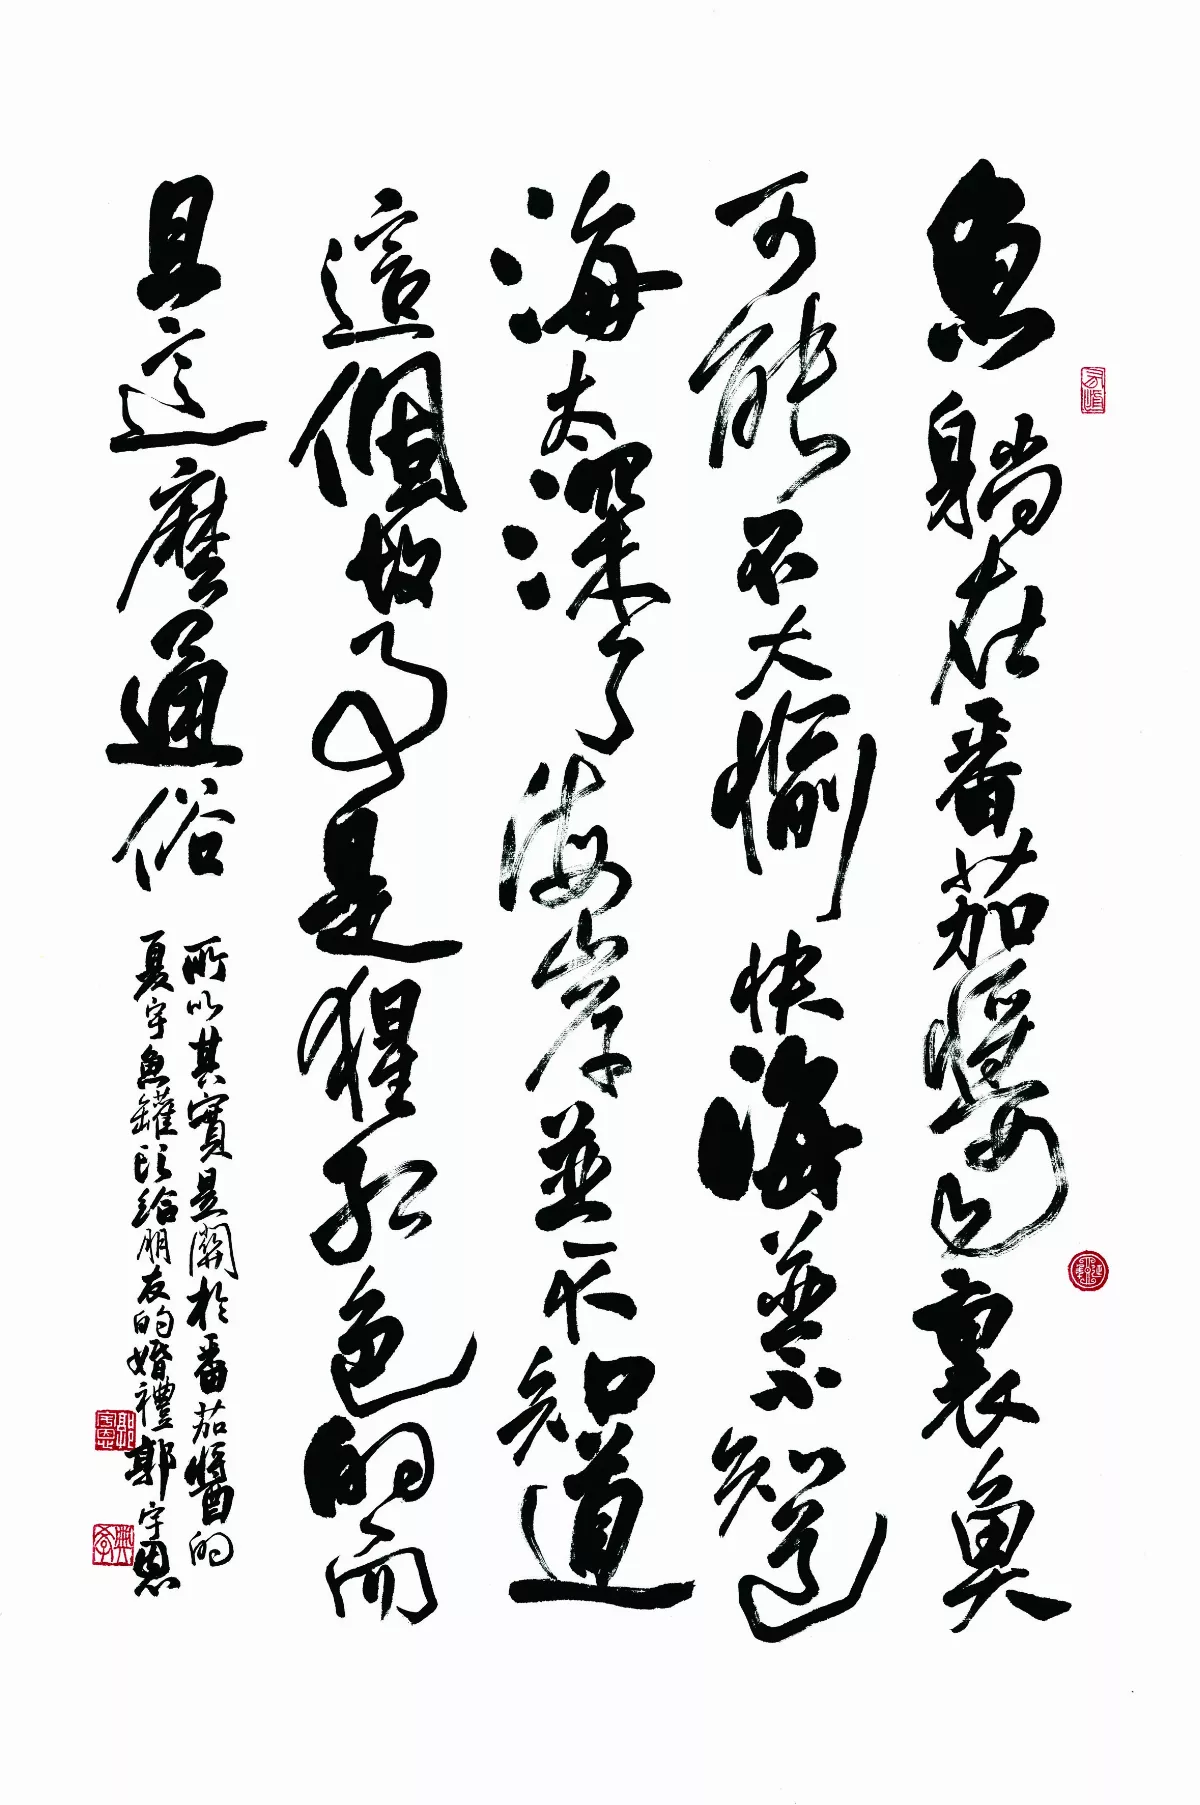 魚躺在番茄醬之裏魚
可能不大愉快海並不知道
海太深了海岸並不知道
這個故事是猩紅色的而
且這麼通俗
所以其實是關於番茄醬的
夏宇魚罐頭給朋友的婚禮郭宇恩